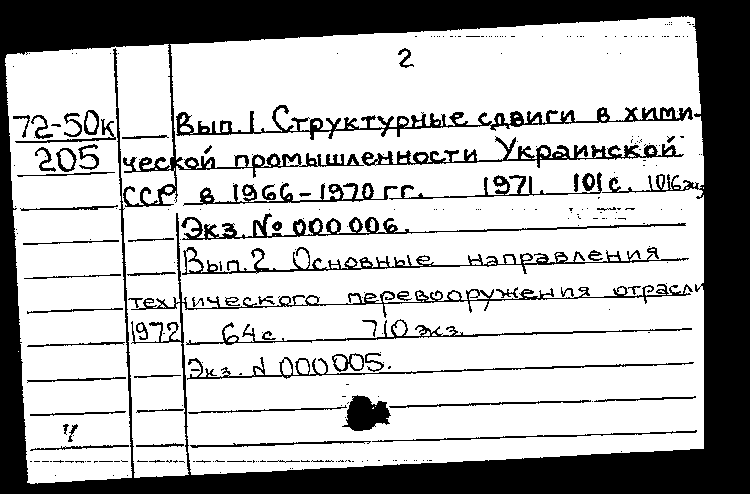 2
72-50к Вып. 1. Структурные сдвиги в хими-
205 ческой промышленности Украинской
ССР в 1966-1970 гг. 1971. 101 с. 1016 экз
Экз. № 000006.
Вып. 2. Основные направления
технического перевооружения отрасли
1972. 64 с. 710 экз.
Экз. N 000005.